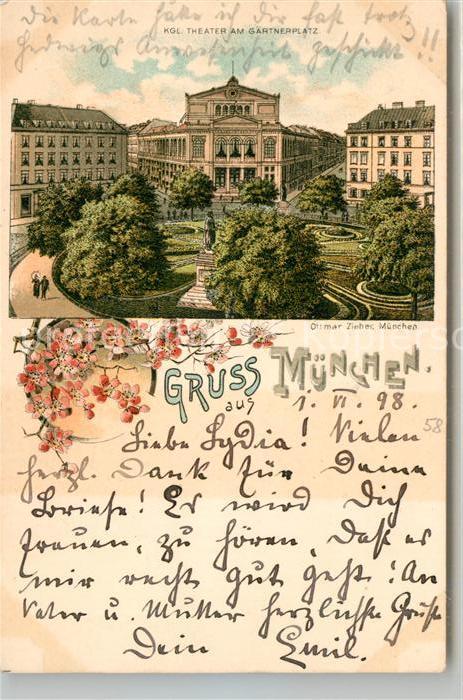 Die Karte hätte ich dir fast trotz
Hedwigs Anwesenheit geschickt!!
KGL. THEATER AM GÄRTNERPLATZ
Ottmar Zieher, München.
GRUSS
aus
MÜNCHEN.
1. VI. 98.
58
Liebe Lydia! Vielen
herzl. Dank für Deine
Briefe! Es wird Dich
freuen, zu hören, daß es
mir recht gut geht! An
Vater u. Mutter herzlichste Grüße
Dein Emil.